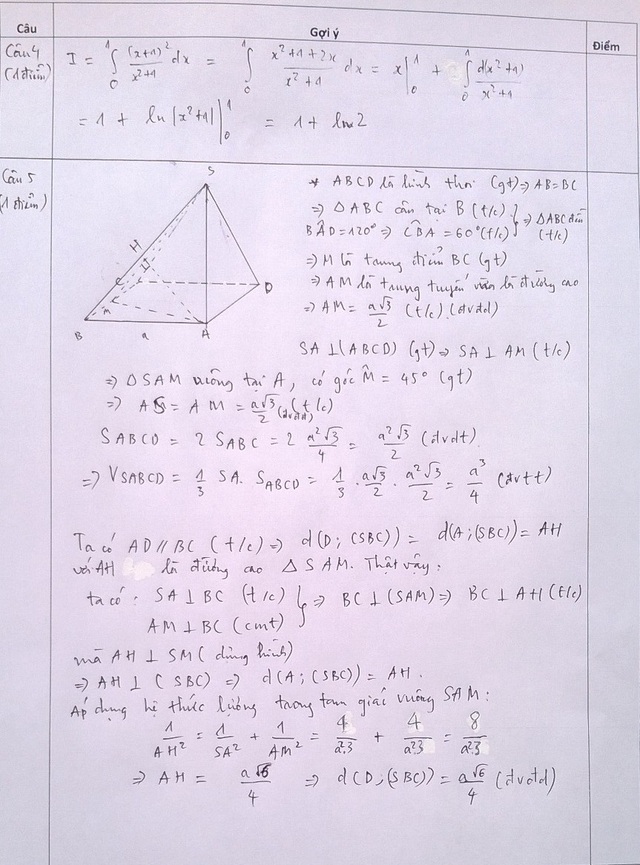 Câu Gợi ý Điểm
Câu 4 (1 điểm)
I = ∫₀¹ (x+1)²/(x²+1) dx = ∫₀¹ (x²+1+2x)/(x²+1) dx = x|₀¹ + ∫₀¹ d(x²+1)/(x²+1)
= 1 + ln|x²+1||₀¹ = 1 + ln2
Câu 5 (1 điểm)
S
H
M
D
B a A
* ABCD là hình thoi (gt) ⇒ AB=BC
⇒ ΔABC cân tại B (t/c)
BAD=120° ⇒ CBA = 60° (t/c) } ⇒ ΔABC đều (t/c)
⇒ M là trung điểm BC (gt)
⇒ AM là trung tuyến vừa là đường cao
⇒ AM = a√3/2 (t/c) (đvđd)
SA⊥(ABCD) (gt) ⇒ SA ⊥ AM (t/c)
⇒ ΔSAM vuông tại A, có góc M̂ = 45° (gt)
⇒ AS = AM = a√3/2 (t/c) (đvđd)
SABCD = 2 SABC = 2 a²√3/4 = a²√3/2 (đvdt)
⇒ VSABCD = 1/3 SA. SABCD = 1/3 . a√3/2 . a²√3/2 = a³/4 (đvtt)
Ta có AD // BC (t/c) ⇒ d(D; (SBC)) = d(A; (SBC)) = AH
với AH là đường cao ΔSAM. Thật vậy:
ta có: SA⊥BC (t/c)
AM⊥BC (cmt) } ⇒ BC⊥(SAM) ⇒ BC⊥AH (t/c)
mà AH ⊥ SM (dựng hình)
⇒ AH⊥(SBC) ⇒ d(A; (SBC)) = AH.
Áp dụng hệ thức lượng trong tam giác vuông SAM:
1/AH² = 1/SA² + 1/AM² = 4/a².3 + 4/a².3 = 8/a².3
⇒ AH = a√6/4 ⇒ d(D;(SBC)) = a√6/4 (đvđd)